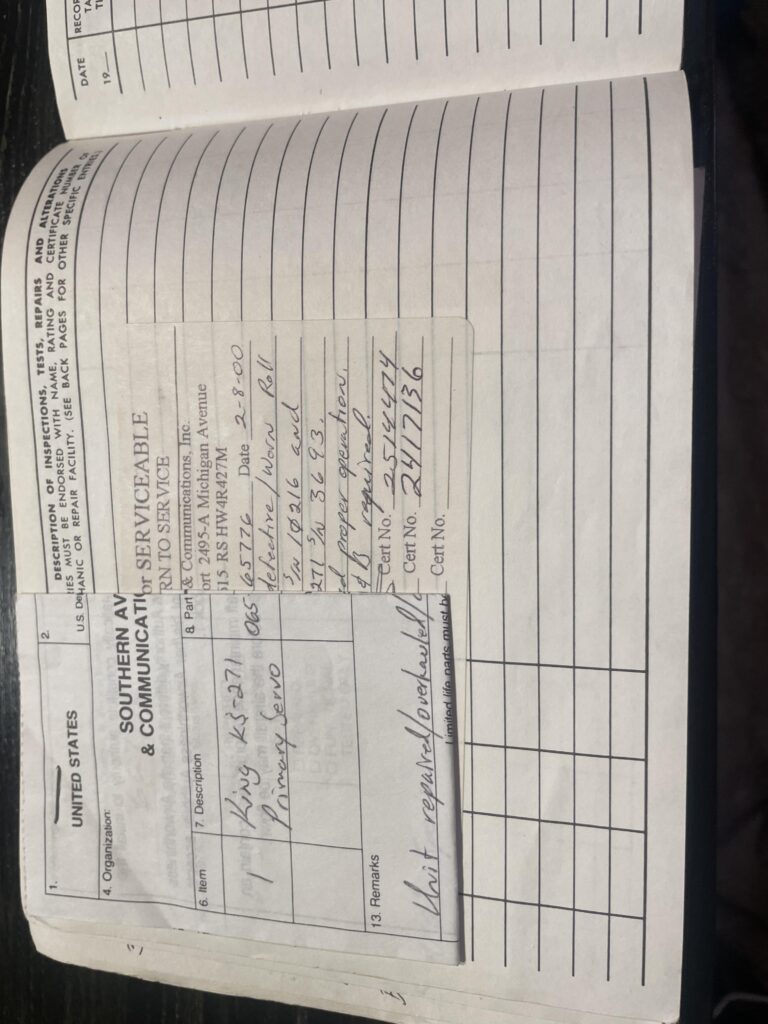 DATE
19
RECOR
TA
TI
DESCRIPTION OF INSPECTIONS, TESTS, REPAIRS AND ALTERATIONS
IES MUST BE ENDORSED WITH NAME, RATING AND CERTIFICATE NUMBER OF
HANIC OR REPAIR FACILITY. (SEE BACK PAGES FOR OTHER SPECIFIC ENTRIES.)
or SERVICEABLE
RN TO SERVICE
& Communications, Inc.
ort 2495-A Michigan Avenue
515 RS HW4R427M
65776 Date 2-8-00
defective/Worn Roll
S/N 10216 and
271 S/N 3693.
d proper operation.
required.
Cert No. 2514474
Cert No. 2417136
Cert No.
1.
UNITED STATES
2.
U.S. D
4. Organization:
SOUTHERN AV
& COMMUNICATIO
6. Item
7. Description
8. Part
1 King KS-271 065-
Primary Servo
13. Remarks
Unit repaired/overhauled/
Limited life parts must be